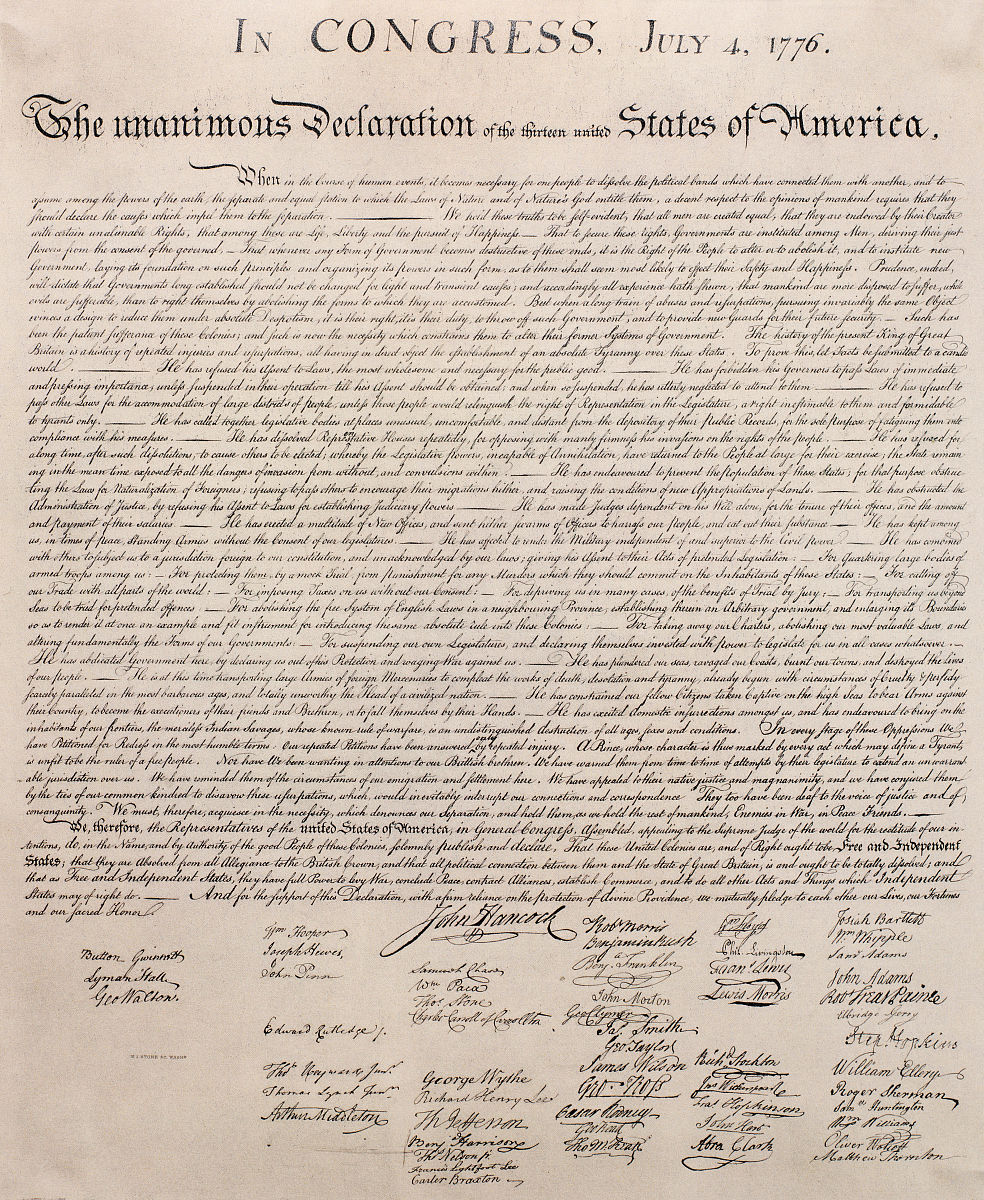 IN CONGRESS, JULY 4, 1776.
The unanimous Declaration of the thirteen united States of America,
When in the Course of human events, it becomes necessary for one people to dissolve the political bands which have connected them with another, and to
assume among the powers of the earth, the separate and equal station to which the Laws of Nature and of Nature's God entitle them, a decent respect to the opinions of mankind requires that they
should declare the causes which impel them to the separation. We hold these truths to be self-evident, that all men are created equal, that they are endowed by their Creator
with certain unalienable Rights, that among these are Life, Liberty and the pursuit of Happiness.— That to secure these rights, Governments are instituted among Men, deriving their just
powers from the consent of the governed,— That whenever any Form of Government becomes destructive of these ends, it is the Right of the People to alter or to abolish it, and to institute new
Government, laying its foundation on such principles and organizing its powers in such form, as to them shall seem most likely to effect their Safety and Happiness. Prudence, indeed,
will dictate that Governments long established should not be changed for light and transient causes; and accordingly all experience hath shewn, that mankind are more disposed to suffer, while
evils are sufferable, than to right themselves by abolishing the forms to which they are accustomed. But when a long train of abuses and usurpations, pursuing invariably the same Object
evinces a design to reduce them under absolute Despotism, it is their right, it is their duty, to throw off such Government, and to provide new Guards for their future security.— Such has
been the patient sufferance of these Colonies; and such is now the necessity which constrains them to alter their former Systems of Government. The history of the present King of Great
Britain is a history of repeated injuries and usurpations, all having in direct object the establishment of an absolute Tyranny over these States. To prove this, let Facts be submitted to a candid
world. — He has refused his Assent to Laws, the most wholesome and necessary for the public good. — He has forbidden his Governors to pass Laws of immediate
and pressing importance, unless suspended in their operation till his Assent should be obtained; and when so suspended, he has utterly neglected to attend to them. — He has refused to
pass other Laws for the accommodation of large districts of people, unless those people would relinquish the right of Representation in the Legislature, a right inestimable to them and formidable
to tyrants only. — He has called together legislative bodies at places unusual, uncomfortable, and distant from the depository of their Public Records, for the sole purpose of fatiguing them into
compliance with his measures. — He has dissolved Representative Houses repeatedly, for opposing with manly firmness his invasions on the rights of the people. — He has refused for
a long time, after such dissolutions, to cause others to be elected; whereby the Legislative powers, incapable of Annihilation, have returned to the People at large for their exercise; the State remain
ing in the mean time exposed to all the dangers of invasion from without, and convulsions within. — He has endeavoured to prevent the population of these States; for that purpose obstruc
ting the Laws for Naturalization of Foreigners; refusing to pass others to encourage their migrations hither, and raising the conditions of new Appropriations of Lands. — He has obstructed the
Administration of Justice, by refusing his Assent to Laws for establishing Judiciary powers. — He has made Judges dependent on his Will alone, for the tenure of their offices, and the amount
and payment of their salaries. — He has erected a multitude of New Offices, and sent hither swarms of Officers to harrass our people, and eat out their substance. — He has kept among
us, in times of peace, Standing Armies without the Consent of our legislatures. — He has affected to render the Military independent of and superior to the Civil power. — He has combined
with others to subject us to a jurisdiction foreign to our constitution, and unacknowledged by our laws; giving his Assent to their Acts of pretended Legislation: — For Quartering large bodies of
armed troops among us: — For protecting them, by a mock Trial, from punishment for any Murders which they should commit on the Inhabitants of these States: — For cutting off
our Trade with all parts of the world: — For imposing Taxes on us without our Consent: — For depriving us in many cases, of the benefits of Trial by Jury: — For transporting us beyond
Seas to be tried for pretended offences — For abolishing the free System of English Laws in a neighbouring Province, establishing therein an Arbitrary government, and enlarging its Boundaries
so as to render it at once an example and fit instrument for introducing the same absolute rule into these Colonies: — For taking away our Charters, abolishing our most valuable Laws, and
altering fundamentally the Forms of our Governments: — For suspending our own Legislatures, and declaring themselves invested with power to legislate for us in all cases whatsoever. —
He has abdicated Government here, by declaring us out of his Protection and waging War against us. — He has plundered our seas, ravaged our Coasts, burnt our towns, and destroyed the lives
of our people. — He is at this time transporting large Armies of foreign Mercenaries to compleat the works of death, desolation and tyranny, already begun with circumstances of Cruelty & perfidy
scarcely paralleled in the most barbarous ages, and totally unworthy the Head of a civilized nation. — He has constrained our fellow Citizens taken Captive on the high Seas to bear Arms against
their Country, to become the executioners of their friends and Brethren, or to fall themselves by their Hands. — He has excited domestic insurrections amongst us, and has endeavoured to bring on the
inhabitants of our frontiers, the merciless Indian Savages, whose known rule of warfare, is an undistinguished destruction of all ages, sexes and conditions. In every stage of these Oppressions We
have Petitioned for Redress in the most humble terms: Our repeated Petitions have been answered only by repeated injury. A Prince, whose character is thus marked by every act which may define a Tyrant,
is unfit to be the ruler of a free people. Nor have We been wanting in attentions to our Brittish brethren. We have warned them from time to time of attempts by their legislature to extend an unwarrant
able jurisdiction over us. We have reminded them of the circumstances of our emigration and settlement here. We have appealed to their native justice and magnanimity, and we have conjured them
by the ties of our common kindred to disavow these usurpations, which, would inevitably interrupt our connections and correspondence. They too have been deaf to the voice of justice and of
consanguinity. We must, therefore, acquiesce in the necessity, which denounces our Separation, and hold them, as we hold the rest of mankind, Enemies in War, in Peace Friends. —
We, therefore, the Representatives of the united States of America, in General Congress, Assembled, appealing to the Supreme Judge of the world for the rectitude of our in
tentions, do, in the Name, and by Authority of the good People of these Colonies, solemnly publish and declare, That these United Colonies are, and of Right ought to be Free and Independent
States; that they are Absolved from all Allegiance to the British Crown, and that all political connection between them and the State of Great Britain, is and ought to be totally dissolved; and
that as Free and Independent States, they have full Power to levy War, conclude Peace, contract Alliances, establish Commerce, and to do all other Acts and Things which Independent
States may of right do. — And for the support of this Declaration, with a firm reliance on the protection of divine Providence, we mutually pledge to each other our Lives, our Fortunes
and our sacred Honor.
Button Gwinnett
Lyman Hall
Geo Walton.
Wm Hooper
Joseph Hewes,
John Penn
Edward Rutledge /.
Thos Heyward Junr.
Thomas Lynch Junr.
Arthur Middleton
John Hancock
Samuel Chase
Wm Paca
Thos Stone
Charles Carroll of Carrollton
George Wythe
Richard Henry Lee
Th Jefferson
Benj Harrison
Thos Nelson jr.
Francis Lightfoot Lee
Carter Braxton
Robt Morris
Benjamin Rush
Benj. Franklin
John Morton
Geo Clymer
Jas. Smith
Geo. Taylor
James Wilson
Geo. Ross
Caesar Rodney
Geo Read
Tho M:Kean
Wm Floyd
Phil. Livingston
Frans. Lewis
Lewis Morris
Richd. Stockton
Jno Witherspoon
Fras. Hopkinson
John Hart
Abra Clark
Josiah Bartlett
Wm Whipple
Saml Adams
John Adams
Robt Treat Paine
Elbridge Gerry
Step. Hopkins
William Ellery
Roger Sherman
Saml Huntington
Wm Williams
Oliver Wolcott
Matthew Thornton
W. J. STONE SC. WASHN